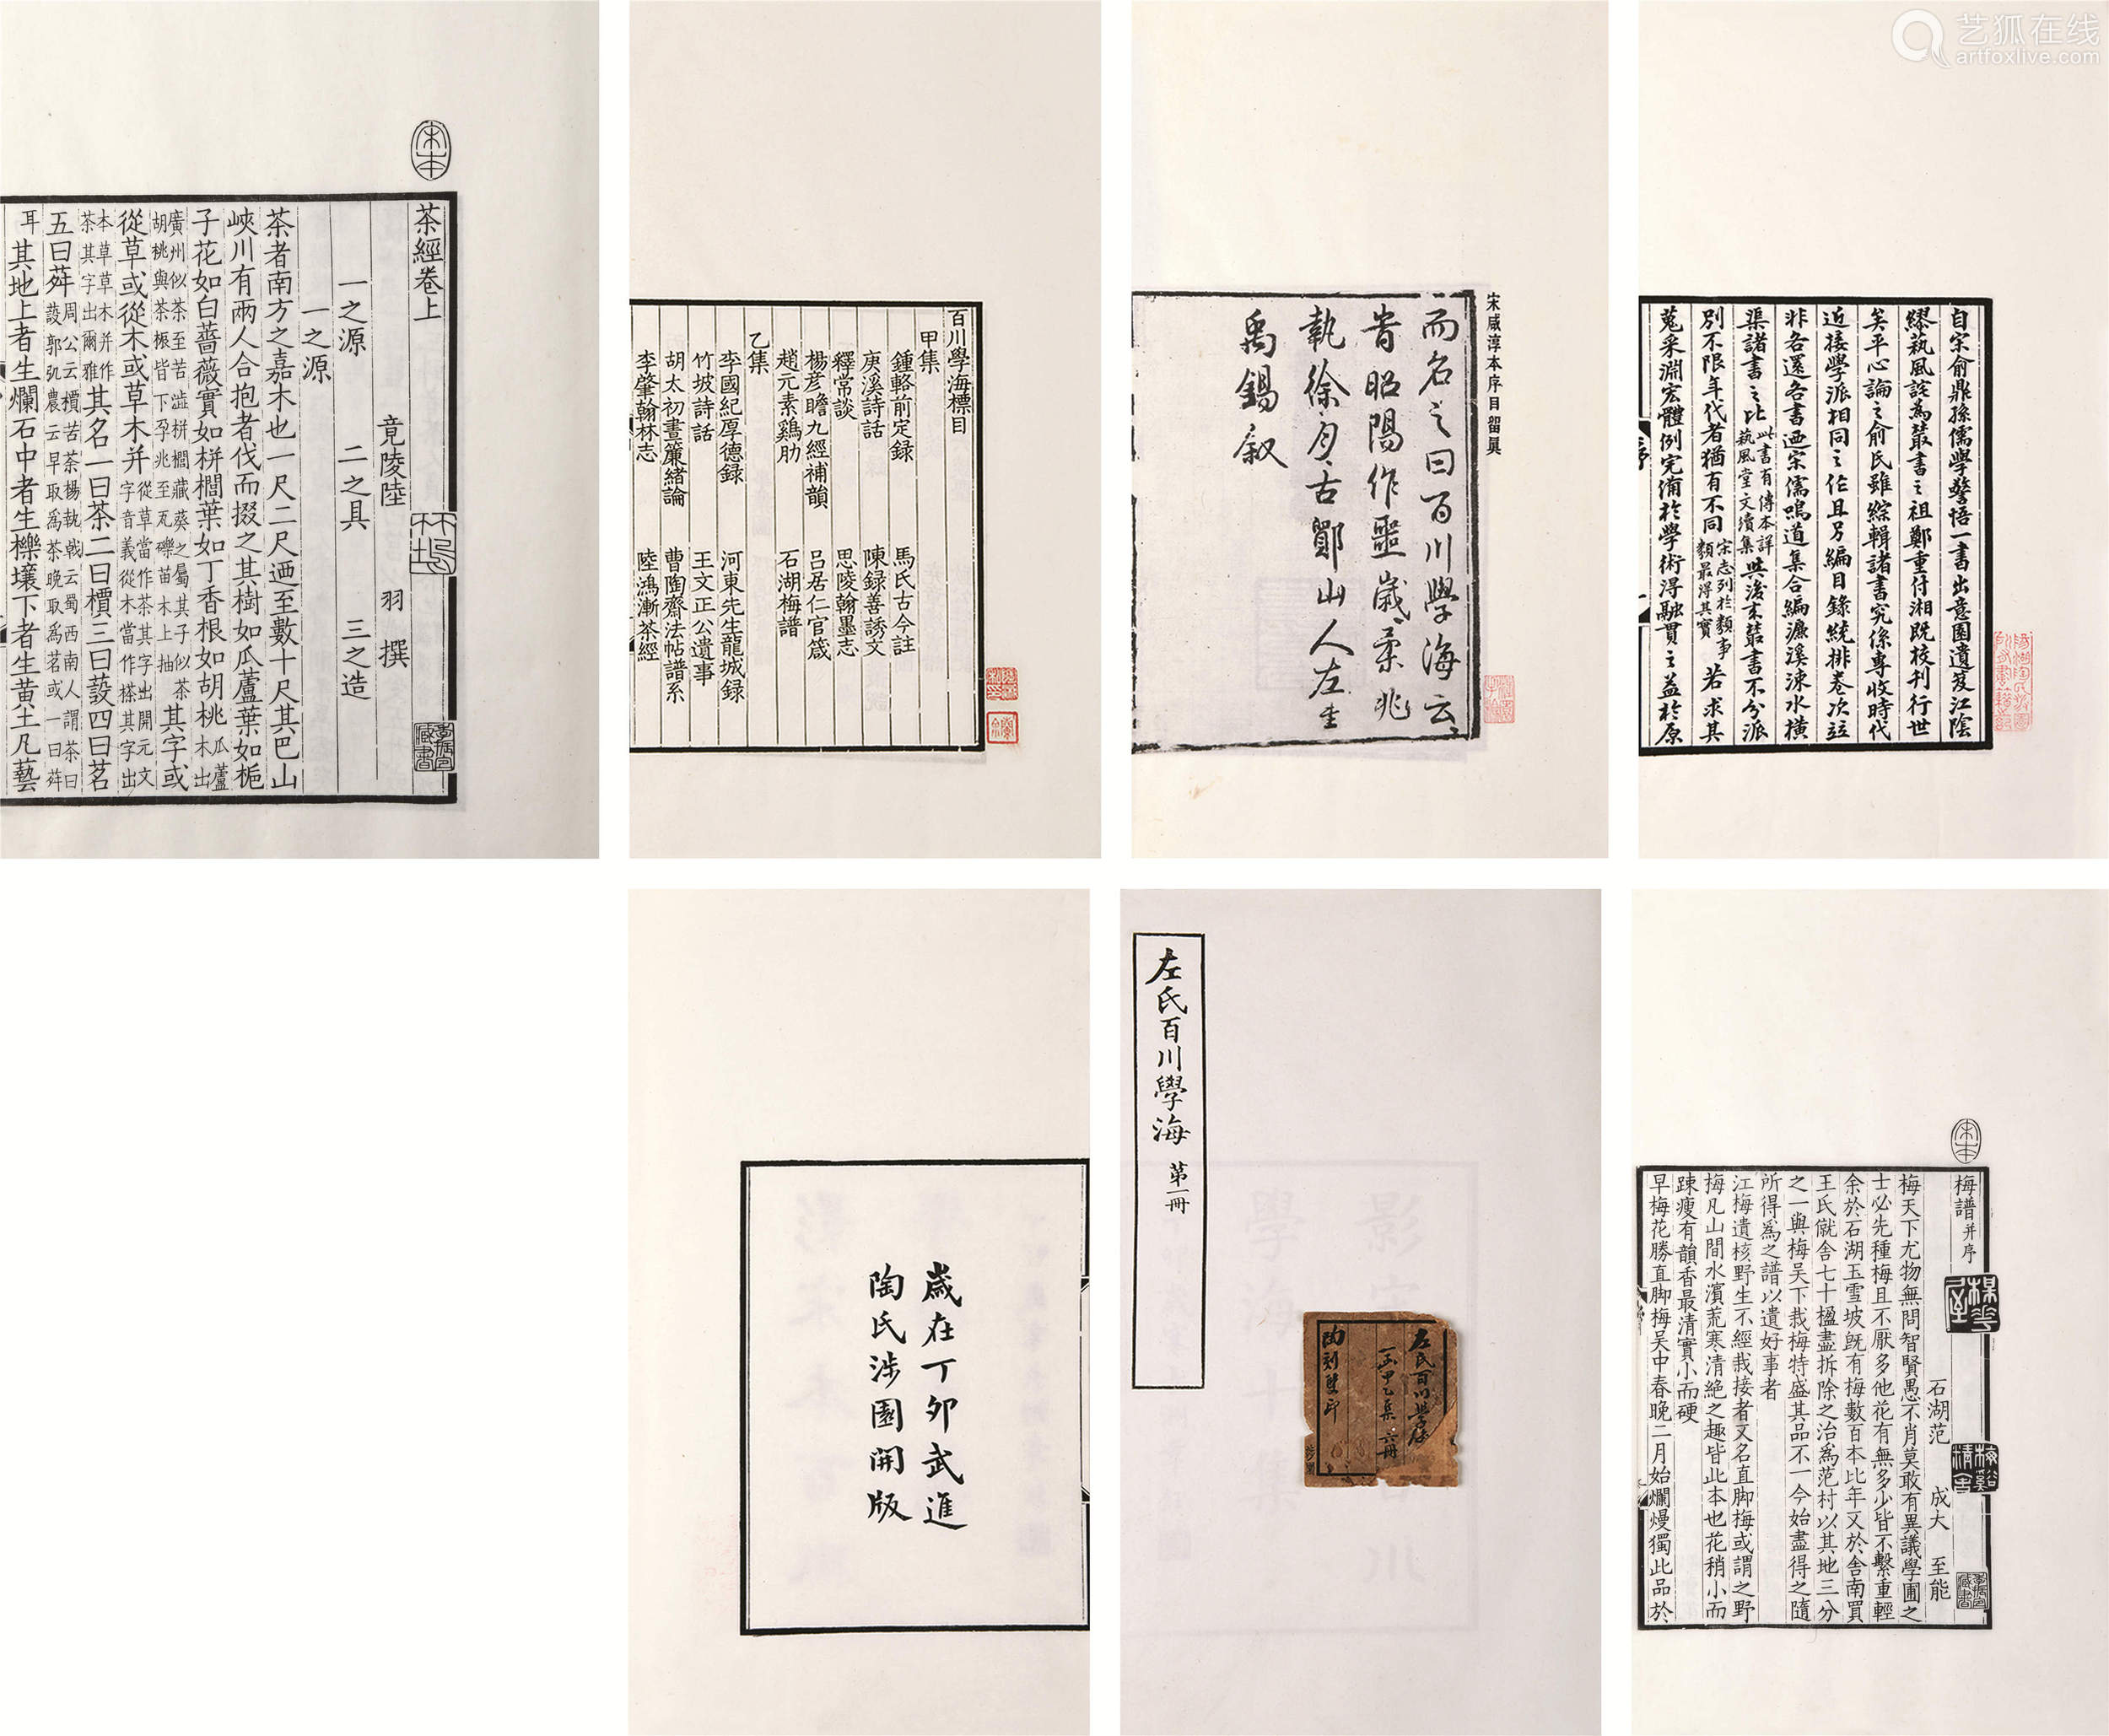 艺狐在线
artfoxlive.com
茶經卷上
竟陵陸 羽 撰
一之源 二之具 三之造
一之源
茶者南方之嘉木也一尺二尺迺至數十尺其巴山
峽川有兩人合抱者伐而掇之其樹如瓜蘆葉如梔
子花如白薔薇實如栟櫚葉如丁香根如胡桃瓜蘆木出
廣州似茶至苦澁栟櫚藏葵之屬其子似茶
胡桃與茶根皆下孕兆至瓦礫苗木上抽
其字或
從草或從木或草木并從草當作茶其字出開元文
字音義從木當作㮆其字出
本草草木并作
茶其字出爾雅
其名一曰茶二曰檟三曰蔎四曰茗
五曰荈周公云檟苦茶楊執戟云蜀西南人謂茶曰
蔎郭弘農云早取爲茶晚取爲茗或一曰荈
耳
其地上者生爛石中者生櫟壤下者生黄土凡藝
百川學海標目
甲集
鍾輅前定録 馬氏古今註
庚溪詩話 陳録善誘文
釋常談 思陵翰墨志
楊彥瞻九經補韻 吕居仁官箴
趙元素鷄肋 石湖梅譜
乙集
李國紀厚德録 河東先生龍城録
竹坡詩話 王文正公遺事
胡太初晝簾緒論 曹陶齋法帖譜系
李肇翰林志 陸鴻漸茶經
宋咸淳本序目留真
而名之曰百川學海云
昔昭陽作噩歲柔兆
執徐月古鄮山人左圭
禹錫叙
自宋俞鼎孫儒學警悟一書出意園遺笈江陰
繆藝風詫為叢書之祖鄭重付湘既校刊行世
矣平心論之俞氏雖綜輯諸書究係專收時代
近接學派相同之作且另編目錄統排卷次竝
非各還各書迺宋儒鳴道集合編濂溪涑水橫
渠諸書之比此書有傳本詳
藝風堂文續集
與後來叢書不分派
別不限年代者猶有不同宋志列於類事
類最得其實
若求其
蒐采淵宏體例完備於學術得融貫之益於原
歲在丁卯武進
陶氏涉園開版
左氏百川學海 第一冊
左氏百川學海
一函甲乙集 六冊
陶刻雙印
梅譜并序
石湖范 成大 至能
梅天下尤物無問智賢愚不肖莫敢有異議學圃之
士必先種梅且不厭多他花有無多少皆不繫重輕
余於石湖玉雪坡旣有梅數百本比年又於舍南買
王氏僦舍七十楹盡拆除之治爲范村以其地三分
之一與梅吴下栽梅特盛其品不一今始盡得之隨
所得爲之譜以遺好事者
江梅遺核野生不經栽接者又名直脚梅或謂之野
梅凡山間水濱荒寒清絶之趣皆此本也花稍小而
踈瘦有韻香最清實小而硬
早梅花勝直脚梅吴中春晚二月始爛熳獨此品於